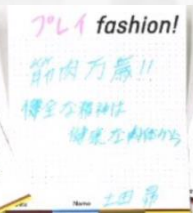 プレイ fashion!
筋肉万歳!!
健全な精神は
健康な肉体から
Name 土田 昴